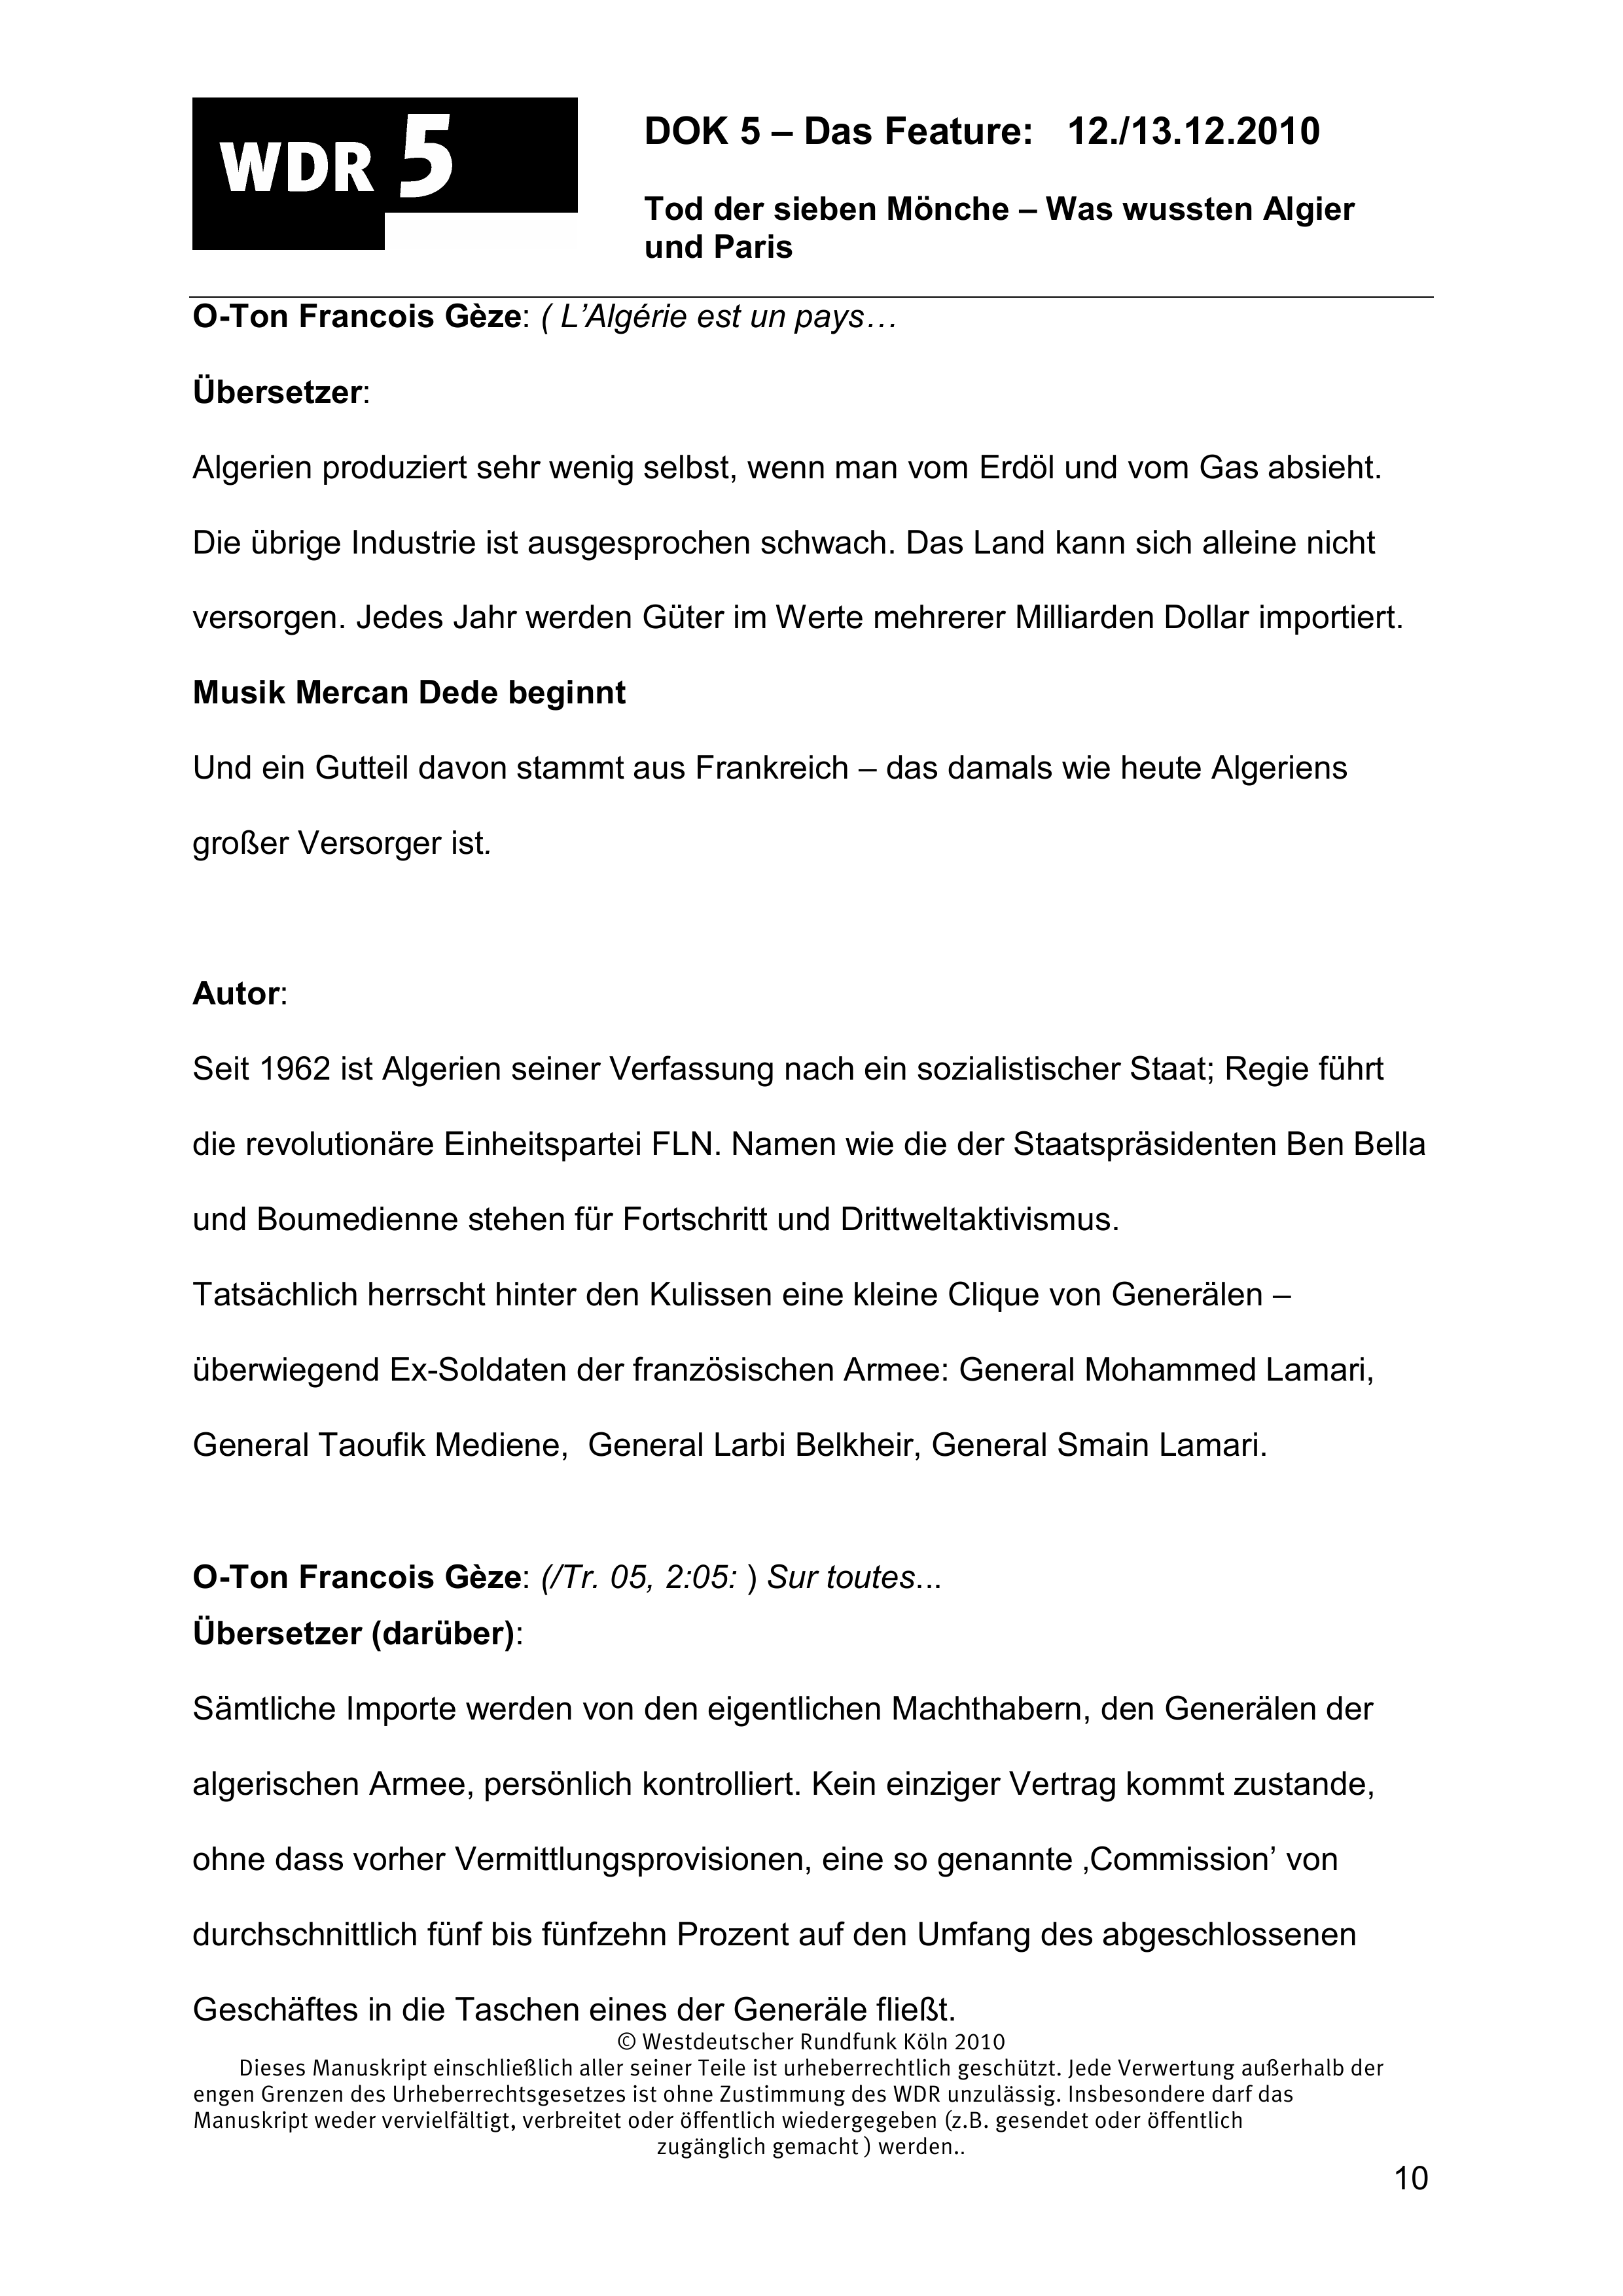 WDR 5
DOK 5 – Das Feature: 12./13.12.2010
Tod der sieben Mönche – Was wussten Algier
und Paris
O-Ton Francois Gèze: ( L’Algérie est un pays…
Übersetzer:
Algerien produziert sehr wenig selbst, wenn man vom Erdöl und vom Gas absieht.
Die übrige Industrie ist ausgesprochen schwach. Das Land kann sich alleine nicht
versorgen. Jedes Jahr werden Güter im Werte mehrerer Milliarden Dollar importiert.
Musik Mercan Dede beginnt
Und ein Gutteil davon stammt aus Frankreich – das damals wie heute Algeriens
großer Versorger ist.
Autor:
Seit 1962 ist Algerien seiner Verfassung nach ein sozialistischer Staat; Regie führt
die revolutionäre Einheitspartei FLN. Namen wie die der Staatspräsidenten Ben Bella
und Boumedienne stehen für Fortschritt und Drittweltaktivismus.
Tatsächlich herrscht hinter den Kulissen eine kleine Clique von Generälen –
überwiegend Ex-Soldaten der französischen Armee: General Mohammed Lamari,
General Taoufik Mediene, General Larbi Belkheir, General Smain Lamari.
O-Ton Francois Gèze: (/Tr. 05, 2:05: ) Sur toutes...
Übersetzer (darüber):
Sämtliche Importe werden von den eigentlichen Machthabern, den Generälen der
algerischen Armee, persönlich kontrolliert. Kein einziger Vertrag kommt zustande,
ohne dass vorher Vermittlungsprovisionen, eine so genannte ‚Commission’ von
durchschnittlich fünf bis fünfzehn Prozent auf den Umfang des abgeschlossenen
Geschäftes in die Taschen eines der Generäle fließt.
© Westdeutscher Rundfunk Köln 2010
Dieses Manuskript einschließlich aller seiner Teile ist urheberrechtlich geschützt. Jede Verwertung außerhalb der
engen Grenzen des Urheberrechtsgesetzes ist ohne Zustimmung des WDR unzulässig. Insbesondere darf das
Manuskript weder vervielfältigt, verbreitet oder öffentlich wiedergegeben (z.B. gesendet oder öffentlich
zugänglich gemacht ) werden..
10